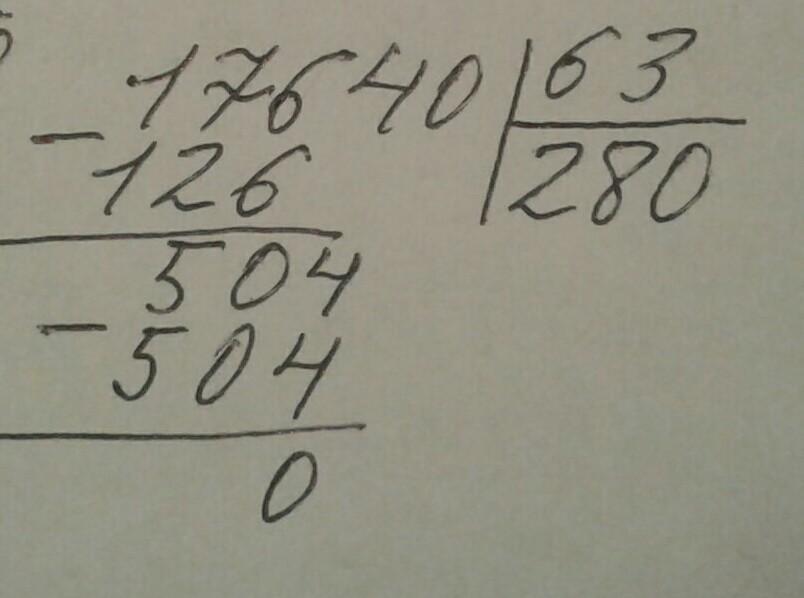 17640 | 63
- 126 | 280
504
- 504
0